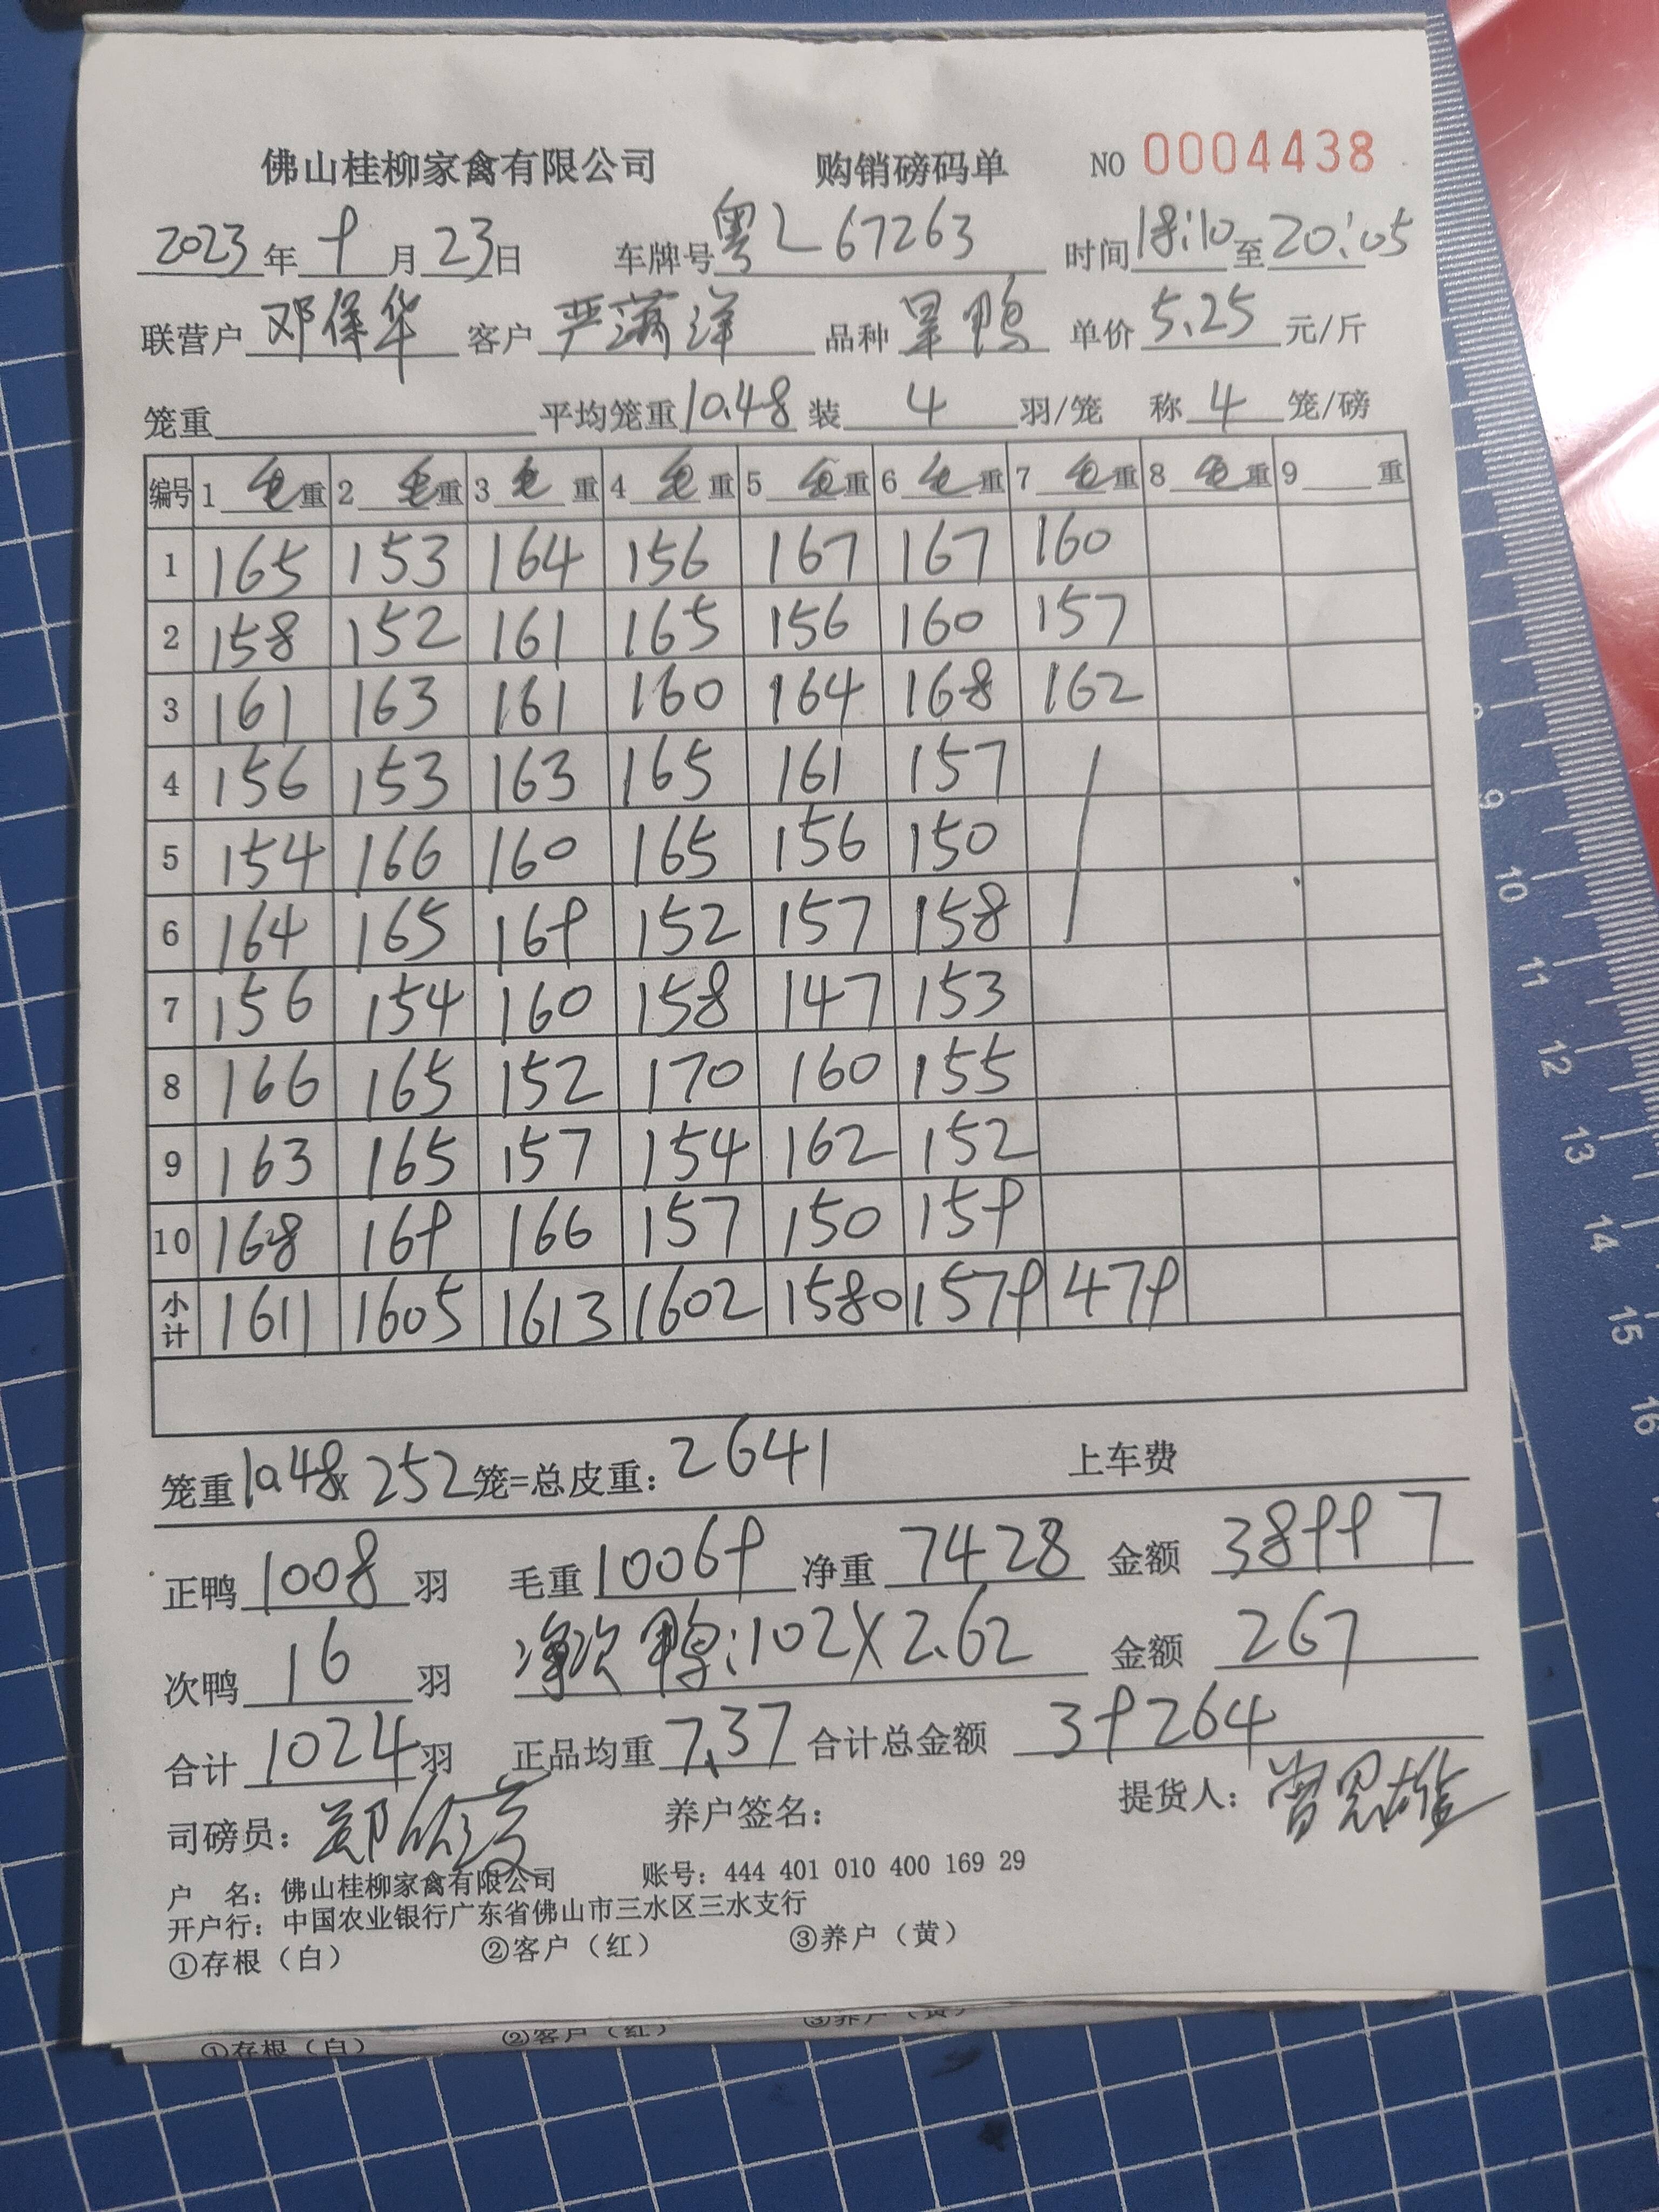 佛山桂柳家禽有限公司 购销磅码单 NO 0004438
2023年9月23日 车牌号粤L67263 时间18:10至20:05
联营户邓保华 客户严满洋 品种 鸭 单价5.25元/斤
笼重 平均笼重10.48装4羽/笼 称4笼/磅
编号 1毛重 2毛重 3毛重 4毛重 5毛重 6毛重 7毛重 8毛重 9 重
1 165 153 164 156 167 167 160
2 158 152 161 165 156 160 157
3 161 163 161 160 164 168 162
4 156 153 163 165 161 157
5 154 166 160 165 156 150
6 164 165 169 152 157 158
7 156 154 160 158 147 153
8 166 165 152 170 160 155
9 163 165 157 154 162 152
10 168 169 166 157 150 159
小计 1611 1605 1613 1602 1580 1579 479
笼重10.48x252笼=总皮重:2641 上车费
正鸭1008羽 毛重10069净重7428 金额38997
次鸭16羽 净次鸭:102X2.62 金额267
合计1024羽 正品均重7.37合计总金额39264
司磅员:郑 养户签名: 提货人:曾思雄
户 名:佛山桂柳家禽有限公司 账号:444 401 010 400 169 29
开户行:中国农业银行广东省佛山市三水区三水支行
①存根(白) ②客户(红) ③养户(黄)
①存根(白) ②客户(红) ③养户(黄)